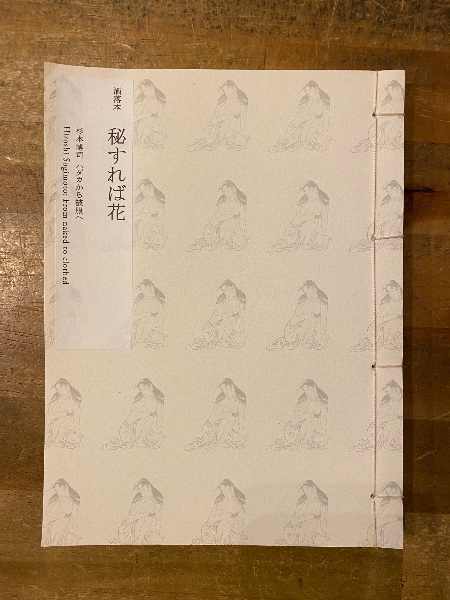 洒落本
秘すれば花
杉本博司 ハダカから被服へ
Hiroshi Sugimoto: From naked to clothed